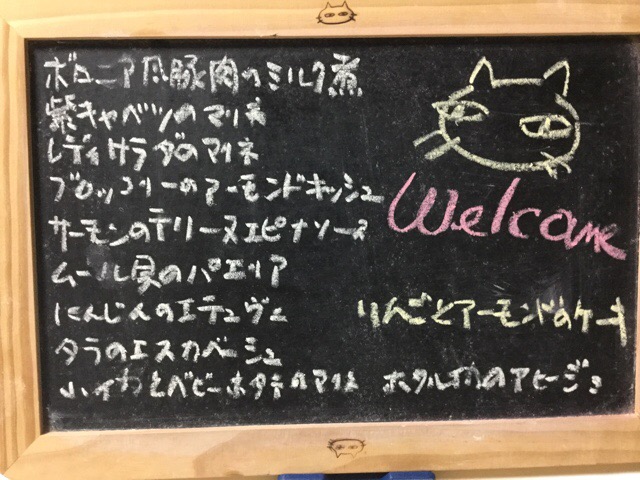 ボロニア風豚肉のミルク煮
紫キャベツのマリネ
レディサラダのマリネ
ブロッコリーのアーモンドキッシュ
サーモンのテリーヌエピナソース
ムール貝のパエリア
にんじんのエテュヴェ
タラのエスカベーシュ
小イカとベビーホタテのマリネ
Welcome
りんごとアーモンドのケーキ
ホタルイカのアヒージョ